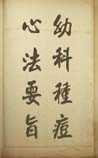 幼科種痘
心法要旨